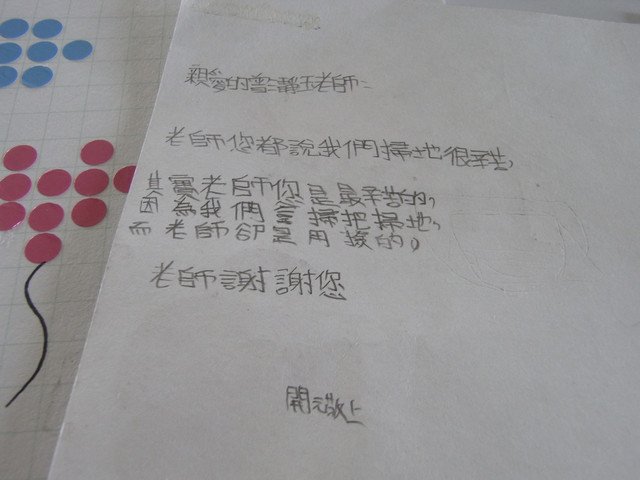 親爱的曾瀞玉老師：
老師您都說我們掃地很辛苦，
其實老師您是最辛苦的，
因為我們拿掃把掃地，
而老師卻是用撿的，
老師謝謝您
開元敬上